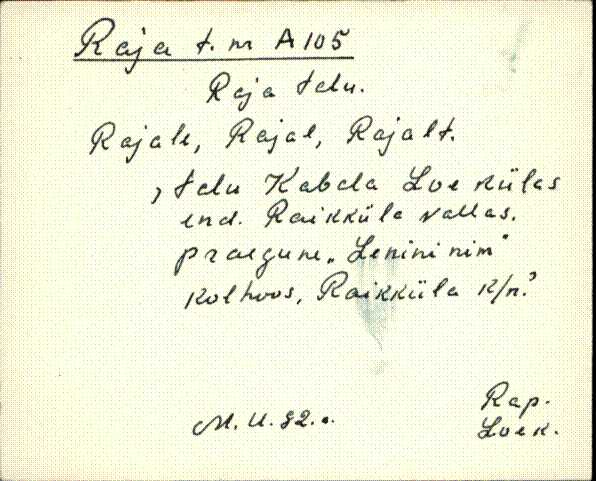 Raja t. nr A 105
Raja talu.
Rajale, Rajal, Rajalt.
, talu Kabala Loe külas
end. Raikküla vallas.
praegune „Lenini nim"
kolhoos, Raikküla k/n.'
M. U. 52. a.
Rap.
Loe k.